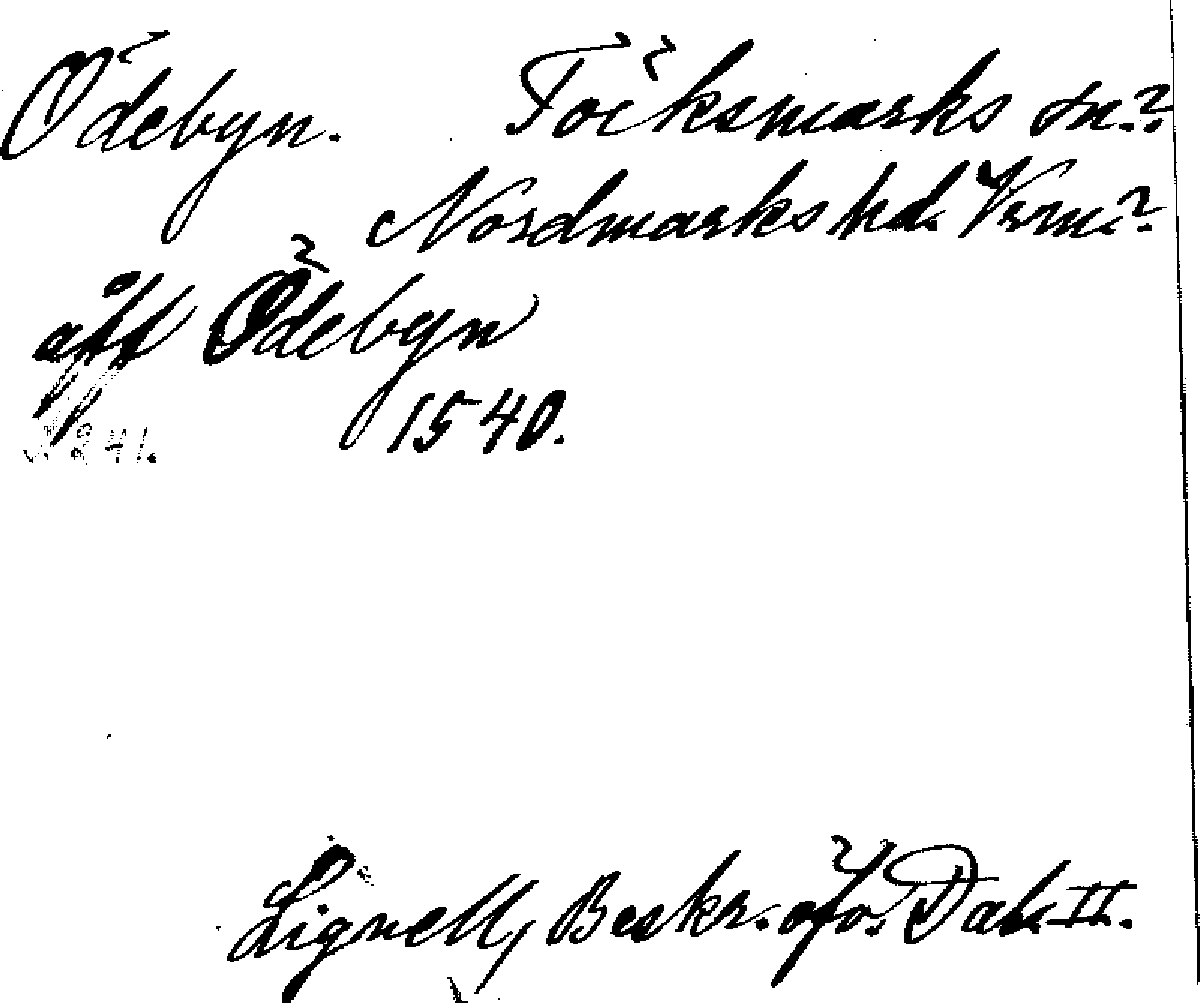 Ödebyn. Töcksmarks sn.?
Nordmarks hd. Vrm.?
åff Ödebyn
1540.
S. 241.
Lignell, Beskr. öfv. Dal. II.